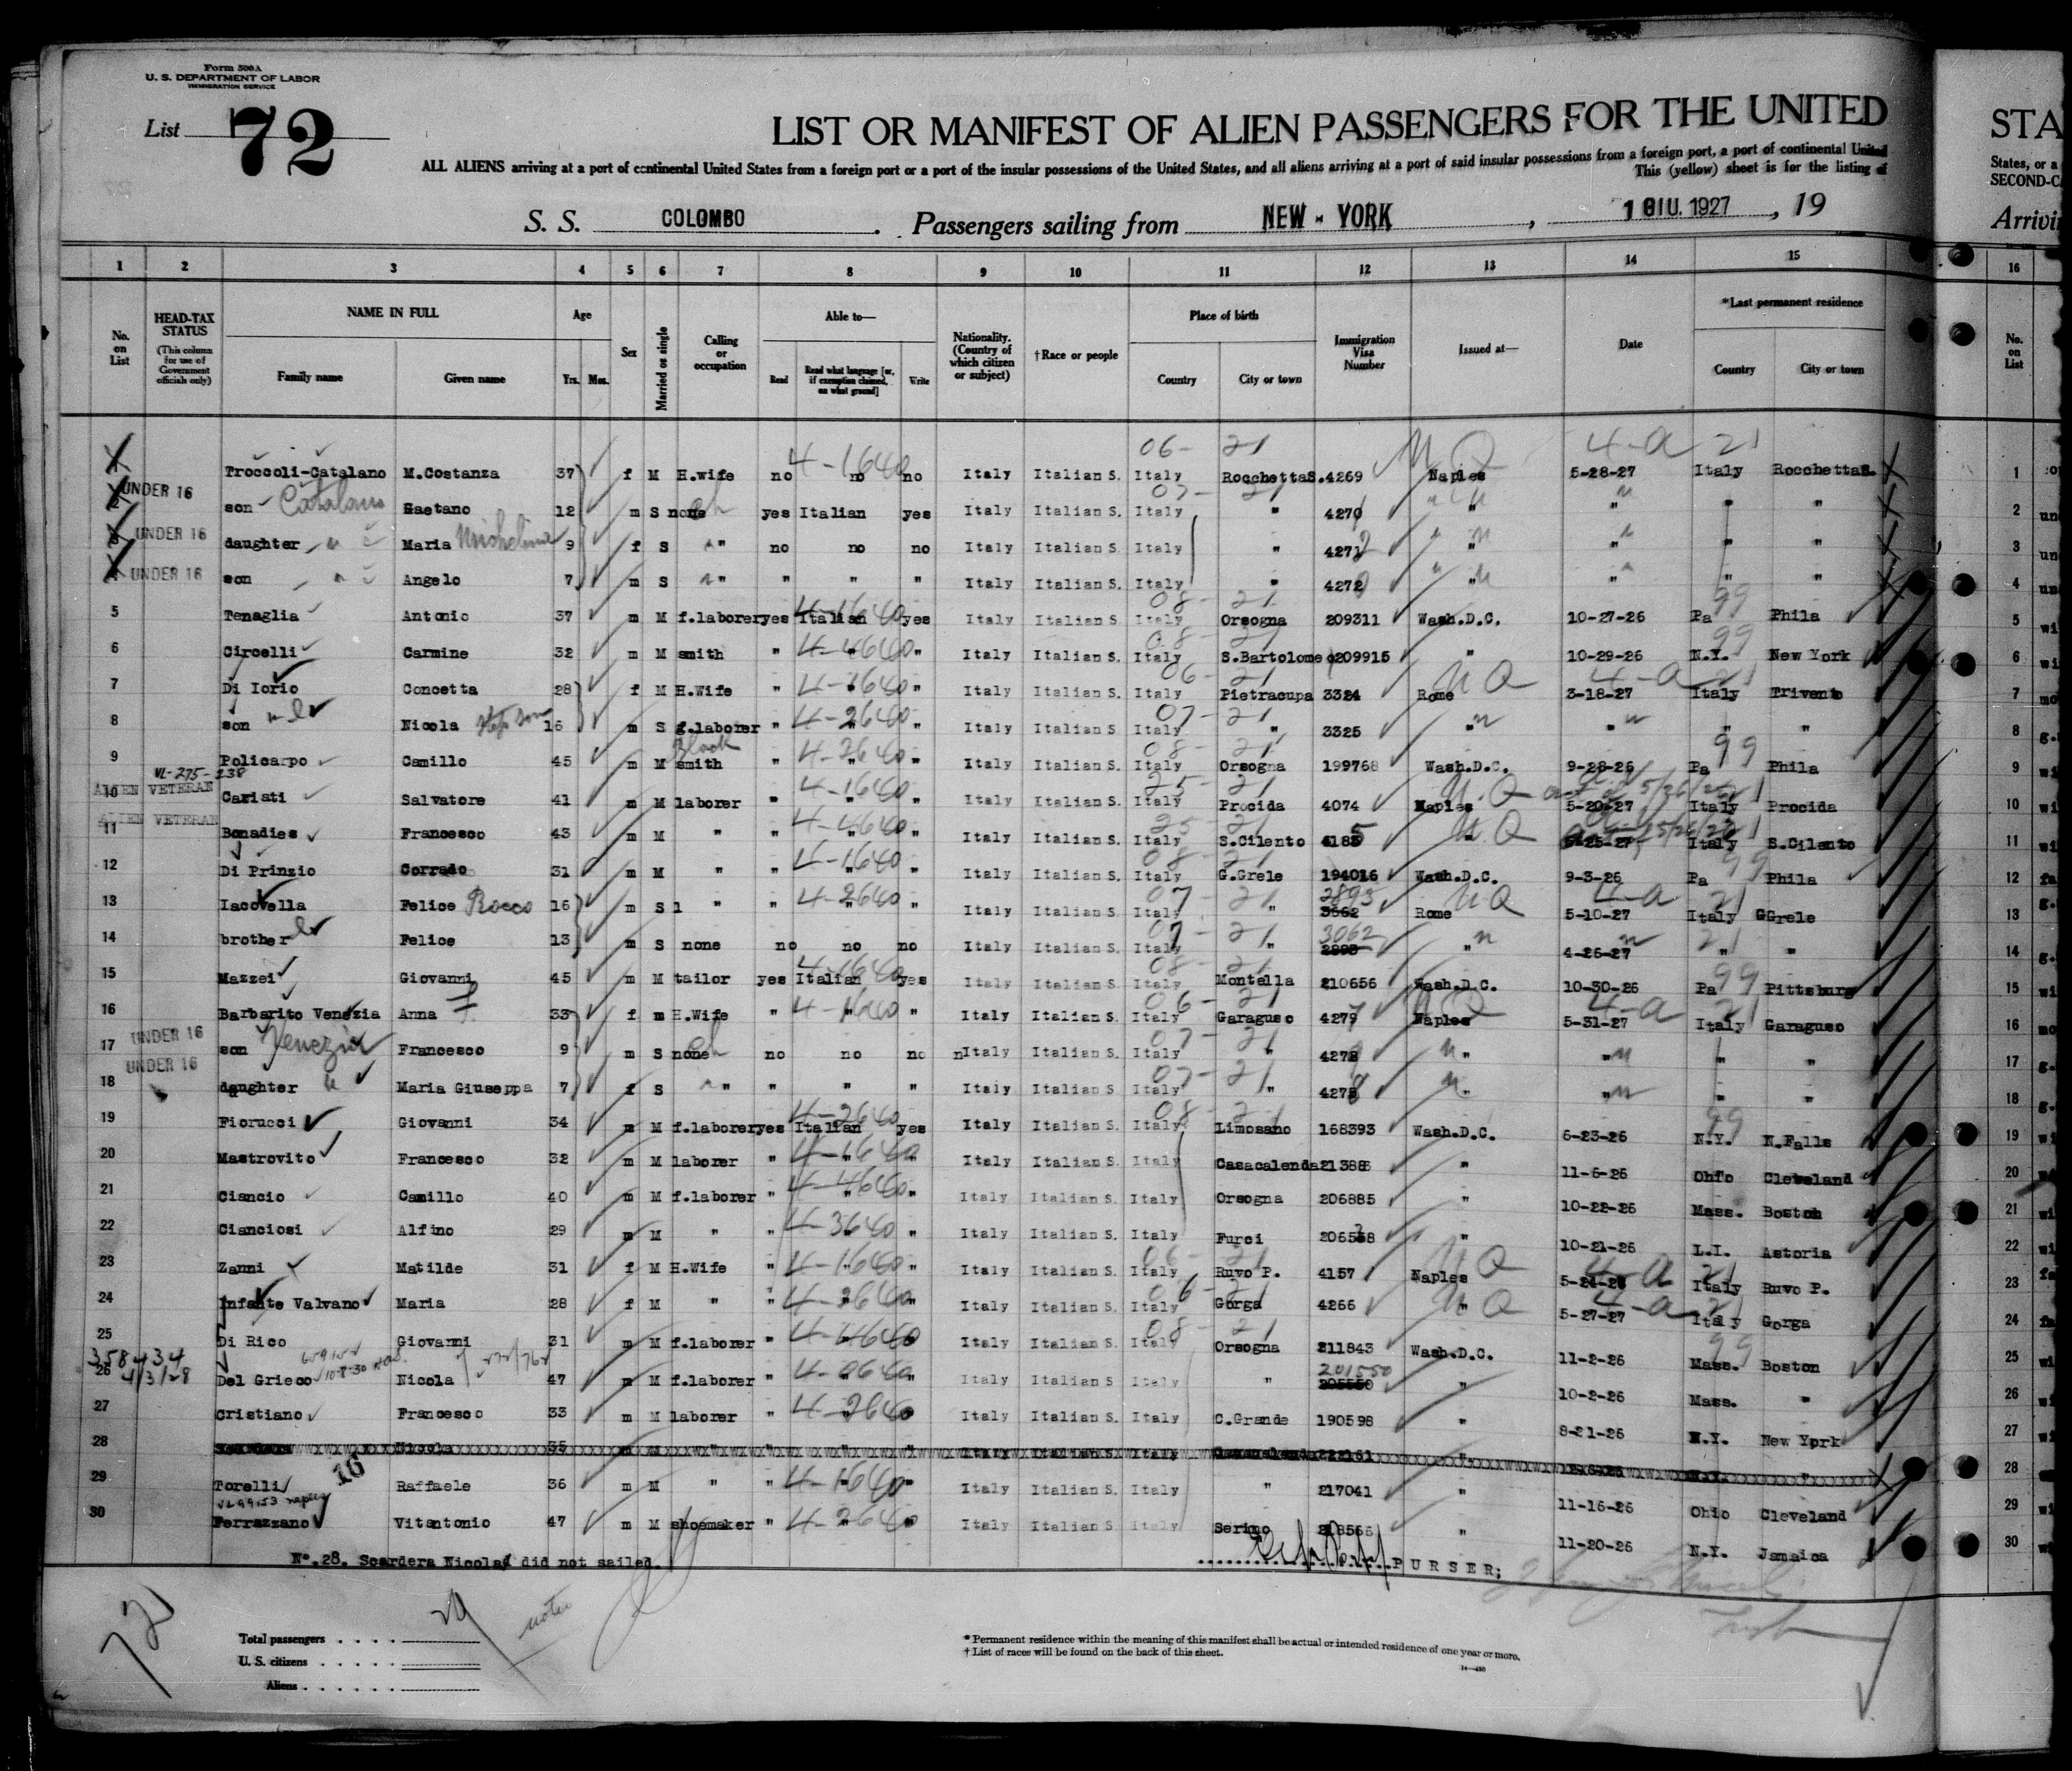 Form 500A
U. S. DEPARTMENT OF LABOR
IMMIGRATION SERVICE
List 72
LIST OR MANIFEST OF ALIEN PASSENGERS FOR THE UNITED
STA
ALL ALIENS arriving at a port of continental United States from a foreign port or a port of the insular possessions of the United States, and all aliens arriving at a port of said insular possessions from a foreign port, a port of continental United
States, or a
This (yellow) sheet is for the listing of
SECOND-C
S. S. COLOMBO . Passengers sailing from NEW - YORK , 1 GIU. 1927 , 19
Arrivin
1 2 3 4 5 6 7 8 9 10 11 12 13 14 15 16
No. on List
HEAD-TAX STATUS (This column for use of Government officials only)
NAME IN FULL Family name Given name
Age Yrs. Mos.
Sex
Married or single
Calling or occupation
Able to— Read Read what language [or, if exemption claimed, on what ground] Write
Nationality. (Country of which citizen or subject)
†Race or people
Place of birth Country City or town
Immigration Visa Number
Issued at—
Date
*Last permanent residence Country City or town
No. on List
06- 21 N Q 4-a 21
Troccoli-Catalano M.Costanza 37 f M H.wife no 4-1640 no no Italy Italian S. Italy RocchettaS. 4269 Naples 5-28-27 Italy RocchettaS. 1
UNDER 16 son Catalano Gaetano 12 m S none yes Italian yes Italy Italian S. Italy " 4270 " " " " 2
UNDER 16 daughter " Maria Michelina 9 f S " no no no Italy Italian S. Italy " 4271 " " " " 3
UNDER 16 son " Angelo 7 m S " " " " Italy Italian S. Italy " 4272 " " " " 4
5 Tenaglia Antonio 37 m M f.laborer yes Italian 4-1640 yes Italy Italian S Italy 08- 21 Orsogna 209311 Wash.D.C. 10-27-26 Pa 99 Phila 5
6 Circelli Carmine 32 m M smith " 4-4640 " Italy Italian S. Italy 08- 21 S.Bartolomeo 209915 " 10-29-26 N.Y. 99 New York 6
7 Di Iorio Concetta 28 f M H.Wife " 4-1640 " Italy Italian S. Italy 06- 21 Pietracupa 3324 Rome N Q 3-18-27 4-a Italy 21 Trivento 7
8 son Nicola Step son 16 m S g.laborer " 4-2640 " Italy Italian S. Italy 07- 21 " 3325 " " " " 8
9 Policarpo Camillo 45 m M Black smith " 4-2640 " Italy Italian S. Italy 08- 21 Orsogna 199768 Wash.D.C. 9-28-26 Pa 99 Phila 9
VL-275-238
ALIEN VETERAN 10 Cariati Salvatore 41 m M laborer " 4-1640 " Italy Italian S. Italy 25- 21 Procida 4074 Naples N Q 5-20-27 Italy Procida 10
ALIEN VETERAN 11 Bonadies Francesco 43 m M " " 4-4640 " Italy Italian S. Italy 25- 21 S.Cilento 4185 " N Q 5-25-27 Italy S.Cilento 11
12 Di Prinzio Corrado 31 m M " " 4-1640 " Italy Italian S. Italy 08- 21 G.Grele 194016 Wash.D.C. 9-3-26 Pa 99 Phila 12
13 Iacovella Felice Rocco 16 m S l " " 4-2640 " Italy Italian S. Italy 07 21 " 2895 3062 Rome N Q 5-10-27 4-a Italy 21 GGrele 13
14 brother Felice 13 m S none no no no Italy Italian S. Italy 07- 21 " 3062 2895 " 4-26-27 " 21 " 14
15 Mazzei Giovanni 45 m M tailor yes Italian 4-1640 yes Italy Italian S. Italy 08- 21 Montella 210656 Wash.D.C. 10-30-26 Pa 99 Pittsburg 15
16 Barbarito Venezia Anna F 33 f m H.Wife " 4-1640 " Italy Italian S. Italy 06- 21 Garaguso 4277 Naples N Q 5-31-27 4-a Italy 21 Garaguso 16
UNDER 16 17 son Venezia Francesco 9 m S none no no no nItaly Italian S. Italy 07- 21 " 4278 " " " " 17
UNDER 16 18 daughter " Maria Giuseppa 7 f S " " " " Italy Italian S Italy 07- 21 " 4279 " " " " 18
19 Fiorucci Giovanni 34 m M f.laborer yes Italian 4-2640 yes Italy Italian S. Italy 08- 21 Limosano 168393 Wash.D.C. 6-23-26 N.Y. 99 N.Falls 19
20 Mastrovito Francesco 32 m M laborer " 4-1640 " Italy Italian S. Italy Casacalenda 21388 " 11-6-26 Ohio Cleveland 20
21 Ciancio Camillo 40 m M f.laborer " 4-4640 " Italy Italian S. Italy Orsogna 206885 " 10-22-26 Mass. Boston 21
22 Cianciosi Alfino 29 m M " " 4-3640 " Italy Italian S. Italy Furci " 10-21-26 L.I. Astoria 22
23 Zanni Matilde 31 f M H.Wife " 4-1640 " Italy Italian S. Italy 06- 21 Ruvo P. 4157 Naples N Q 4-a Italy 21 Ruvo P. 23
24 Infante Valvano Maria 28 f M " " 4-3640 " Italy Italian S. Italy 06- 21 Gorga 4266 " N Q 5-27-27 4-a Italy 21 Gorga 24
25 Di Rico Giovanni 31 m M f.laborer " 4-4640 " Italy Italian S. Italy 08- 21 Orsogna 211843 Wash.D.C. 11-2-26 Mass. 99 Boston 25
358434 4/3/28
26 Del Grieco 10-8-30 Nicola 47 m M f.laborer " 4-2640 " Italy Italian S Italy " 201550 205550 " 10-2-26 Mass. " 26
27 Cristiano Francesco 33 m M laborer " 4-2640 " Italy Italian S. Italy C.Grande 190598 " 8-21-26 N.Y. New York 27
28 Scardera Nicola 35 m M " " " " Italy Italian S. Italy Casacalenda 222161 " N.Y. " 28
16
29 Torelli Raffaele 36 m M " " 4-1640 " Italy Italian S. Italy " 217041 " 11-16-26 Ohio Cleveland 29
30 Ferrazzano Vitantonio 47 m M shoemaker " 4-2640 " Italy Italian S Italy Serino 218566 " 11-20-26 N.Y. Jamaica 30
N°.28. Scardera Nicola did not sailed. PURSER;
72
29
Total passengers
U. S. citizens
Aliens
* Permanent residence within the meaning of this manifest shall be actual or intended residence of one year or more.
† List of races will be found on the back of this sheet.